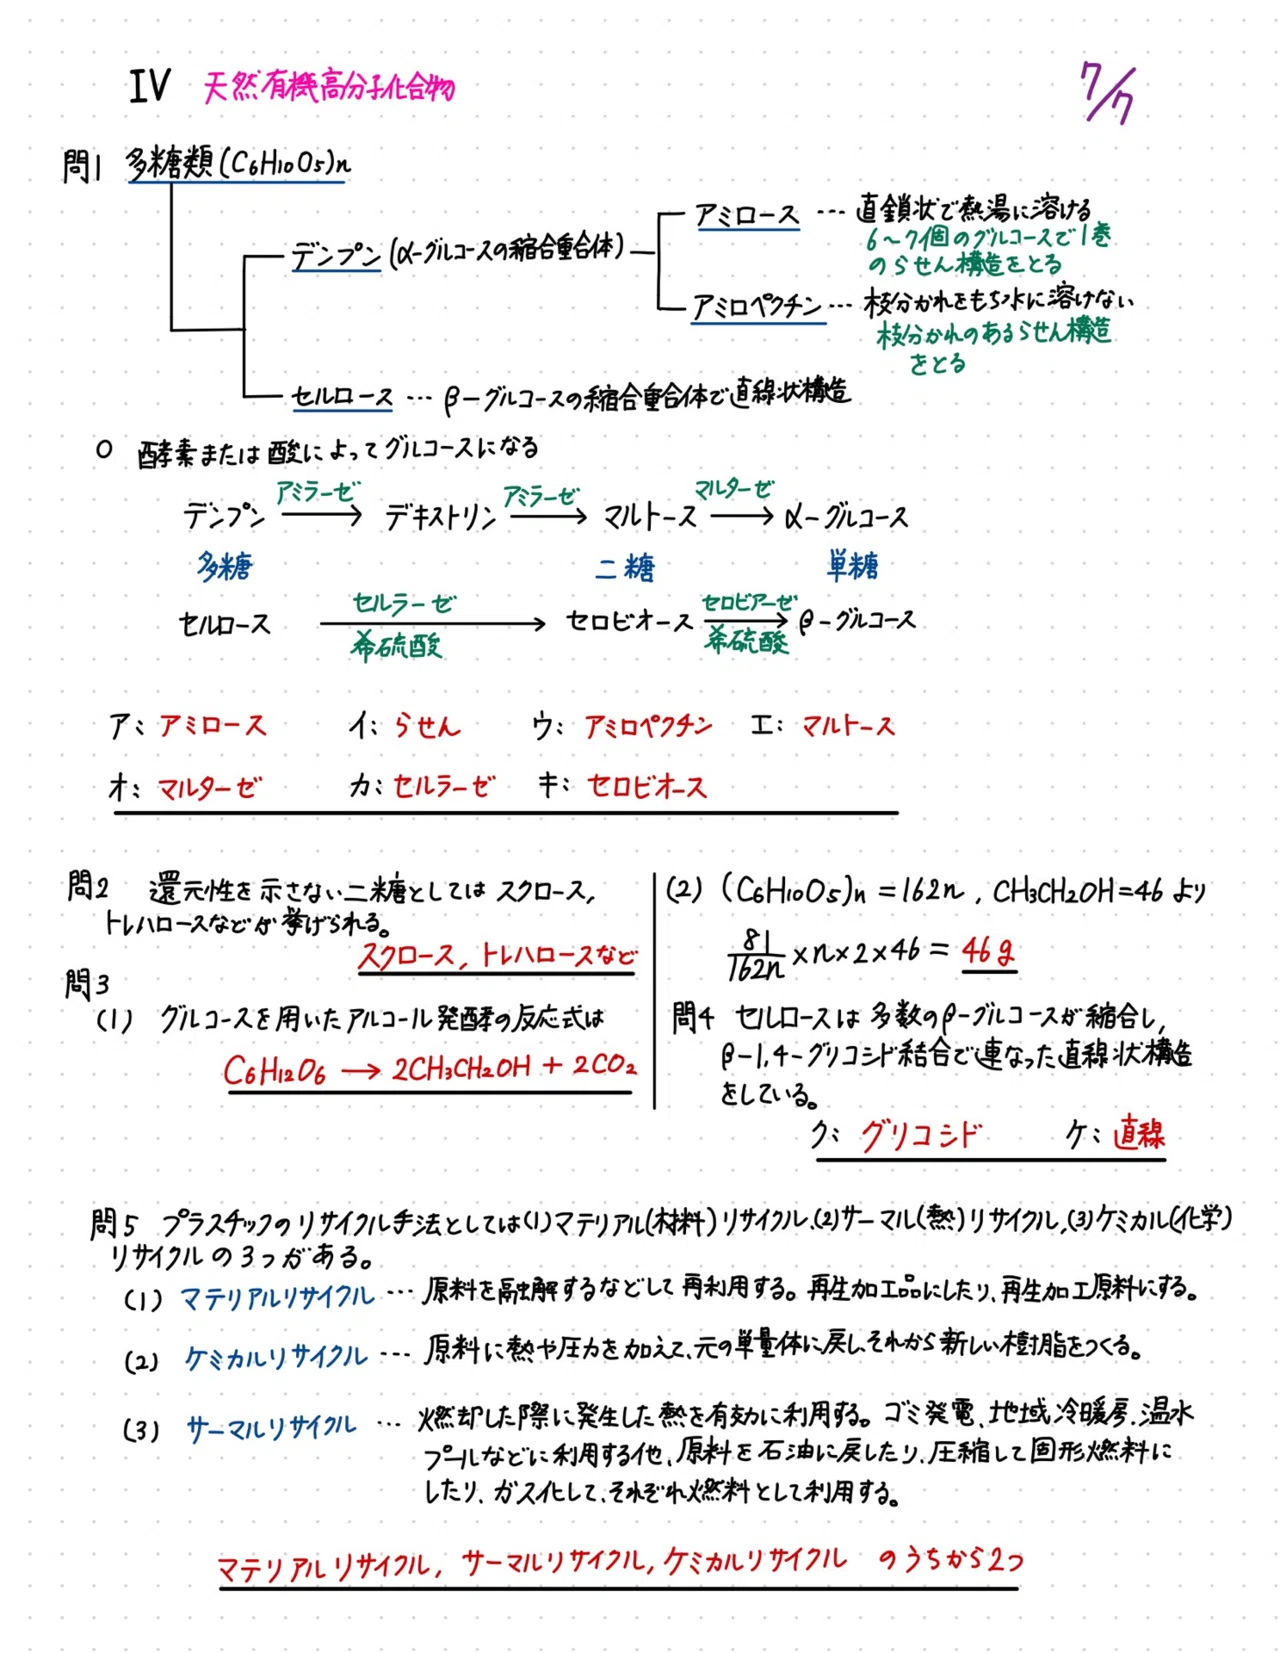 IV 天然有機高分子化合物
7/7
問1 多糖類(C6H10O5)n
アミロース … 直鎖状で熱湯に溶ける
6〜7個のグルコースで1巻
のらせん構造をとる
デンプン(α-グルコースの縮合重合体)
アミロペクチン … 枝分かれをもち水に溶けない
枝分かれのあるらせん構造
をとる
セルロース … β-グルコースの縮合重合体で直線状構造
○ 酵素または酸によってグルコースになる
アミラーゼ アミラーゼ マルターゼ
デンプン → デキストリン → マルトース → α-グルコース
多糖 二糖 単糖
セルラーゼ セロビアーゼ
セルロース → セロビオース → β-グルコース
希硫酸 希硫酸
ア: アミロース イ: らせん ウ: アミロペクチン エ: マルトース
オ: マルターゼ カ: セルラーゼ キ: セロビオース
問2 還元性を示さない二糖としてはスクロース,
トレハロースなどが挙げられる。
スクロース, トレハロースなど
問3
(1) グルコースを用いたアルコール発酵の反応式は
C6H12O6 → 2CH3CH2OH + 2CO2
(2) (C6H10O5)n = 162n, CH3CH2OH = 46 より
81/162n × n × 2 × 46 = 46g
問4 セルロースは多数のβ-グルコースが縮合し,
β-1,4-グリコシド結合で連なった直線状構造
をしている。
ク: グリコシド ケ: 直線
問5 プラスチックのリサイクル手法としては(1)マテリアル(材料)リサイクル、(2)サーマル(熱)リサイクル、(3)ケミカル(化学)
リサイクルの3つがある。
(1) マテリアルリサイクル … 原料を融解するなどして再利用する。再生加工品にしたり、再生加工原料にする。
(2) ケミカルリサイクル … 原料に熱や圧力を加えて、元の単量体に戻しそれから新しい樹脂をつくる。
(3) サーマルリサイクル … 燃却した際に発生した熱を有効に利用する。ゴミ発電、地域冷暖房、温水
プールなどに利用する他、原料を石油に戻したり、圧縮して固形燃料に
したり、ガス化して、それぞれ燃料として利用する。
マテリアルリサイクル, サーマルリサイクル, ケミカルリサイクル のうちから2つ